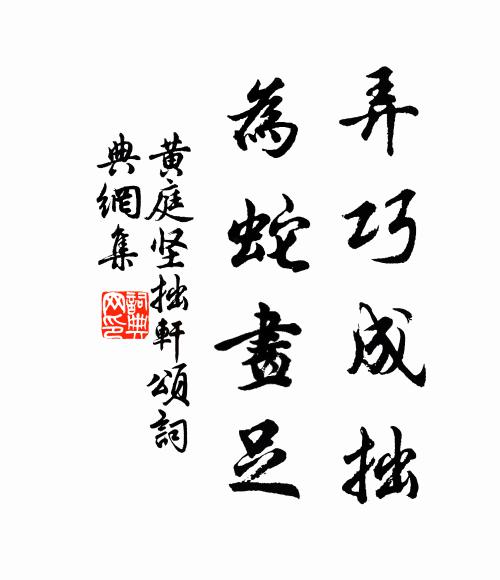 弄巧成拙
為蛇畫足
黃庭坚拙軒頌詞
典網集
詞典
网印